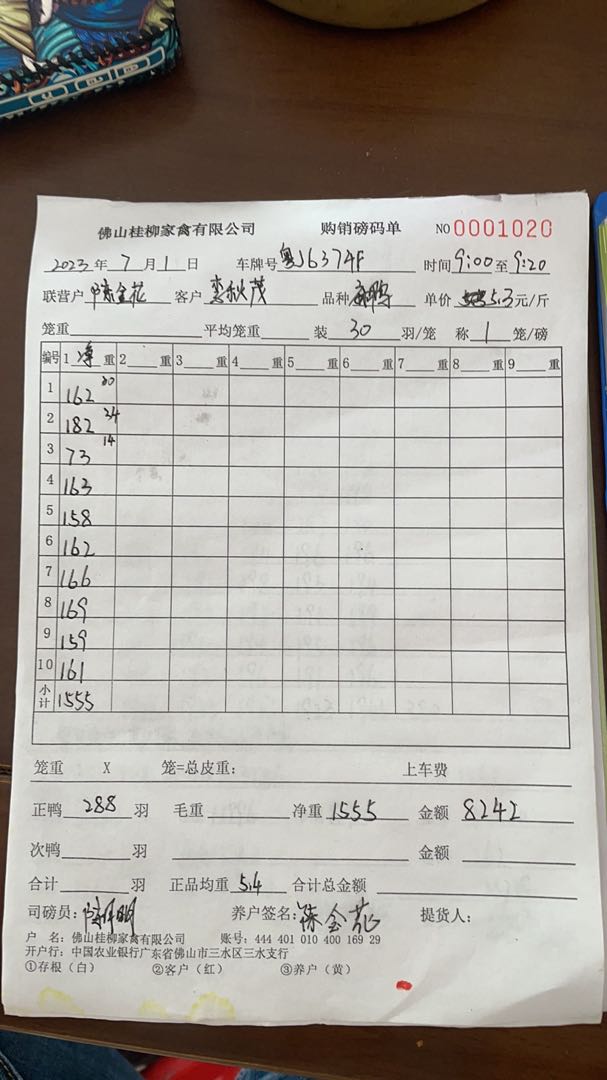 佛山桂柳家禽有限公司 购销磅码单 NO 0001020
2023年 7 月 1 日 车牌号 粤J6374F 时间 9:00 至 9:20
联营户 陈金花 客户 李秋茂 品种 单价 5.3 元/斤
笼重 平均笼重 装 30 羽/笼 称 1 笼/磅
编号 1 净 重 2 重 3 重 4 重 5 重 6 重 7 重 8 重 9 重
1 162 30
2 182 34
3 73 14
4 163
5 158
6 162
7 166
8 169
9 159
10 161
小计 1555
笼重 X 笼=总皮重: 上车费
正鸭 288 羽 毛重 净重 1555 金额 8242
次鸭 羽 金额
合计 羽 正品均重 5.4 合计总金额
司磅员: 养户签名: 陈金花 提货人:
户 名: 佛山桂柳家禽有限公司 账号: 444 401 010 400 169 29
开户行: 中国农业银行广东省佛山市三水区三水支行
①存根（白） ②客户（红） ③养户（黄）